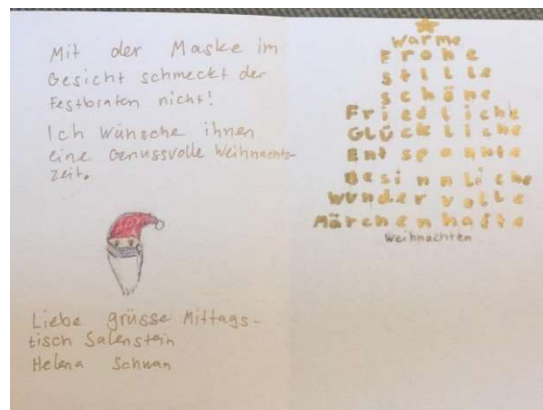 Mit der Maske im
Gesicht schmeckt der
Festbraten nicht!
Ich wünsche ihnen
eine Genussvolle Weihnachts-
zeit.
Liebe grüsse Mittags-
tisch Salenstein
Helena Schwan
Warme
Frohe
stille
schöne
Friedliche
Glückliche
Entspannte
Besinnliche
wundervolle
Märchenhafte
Weihnachten